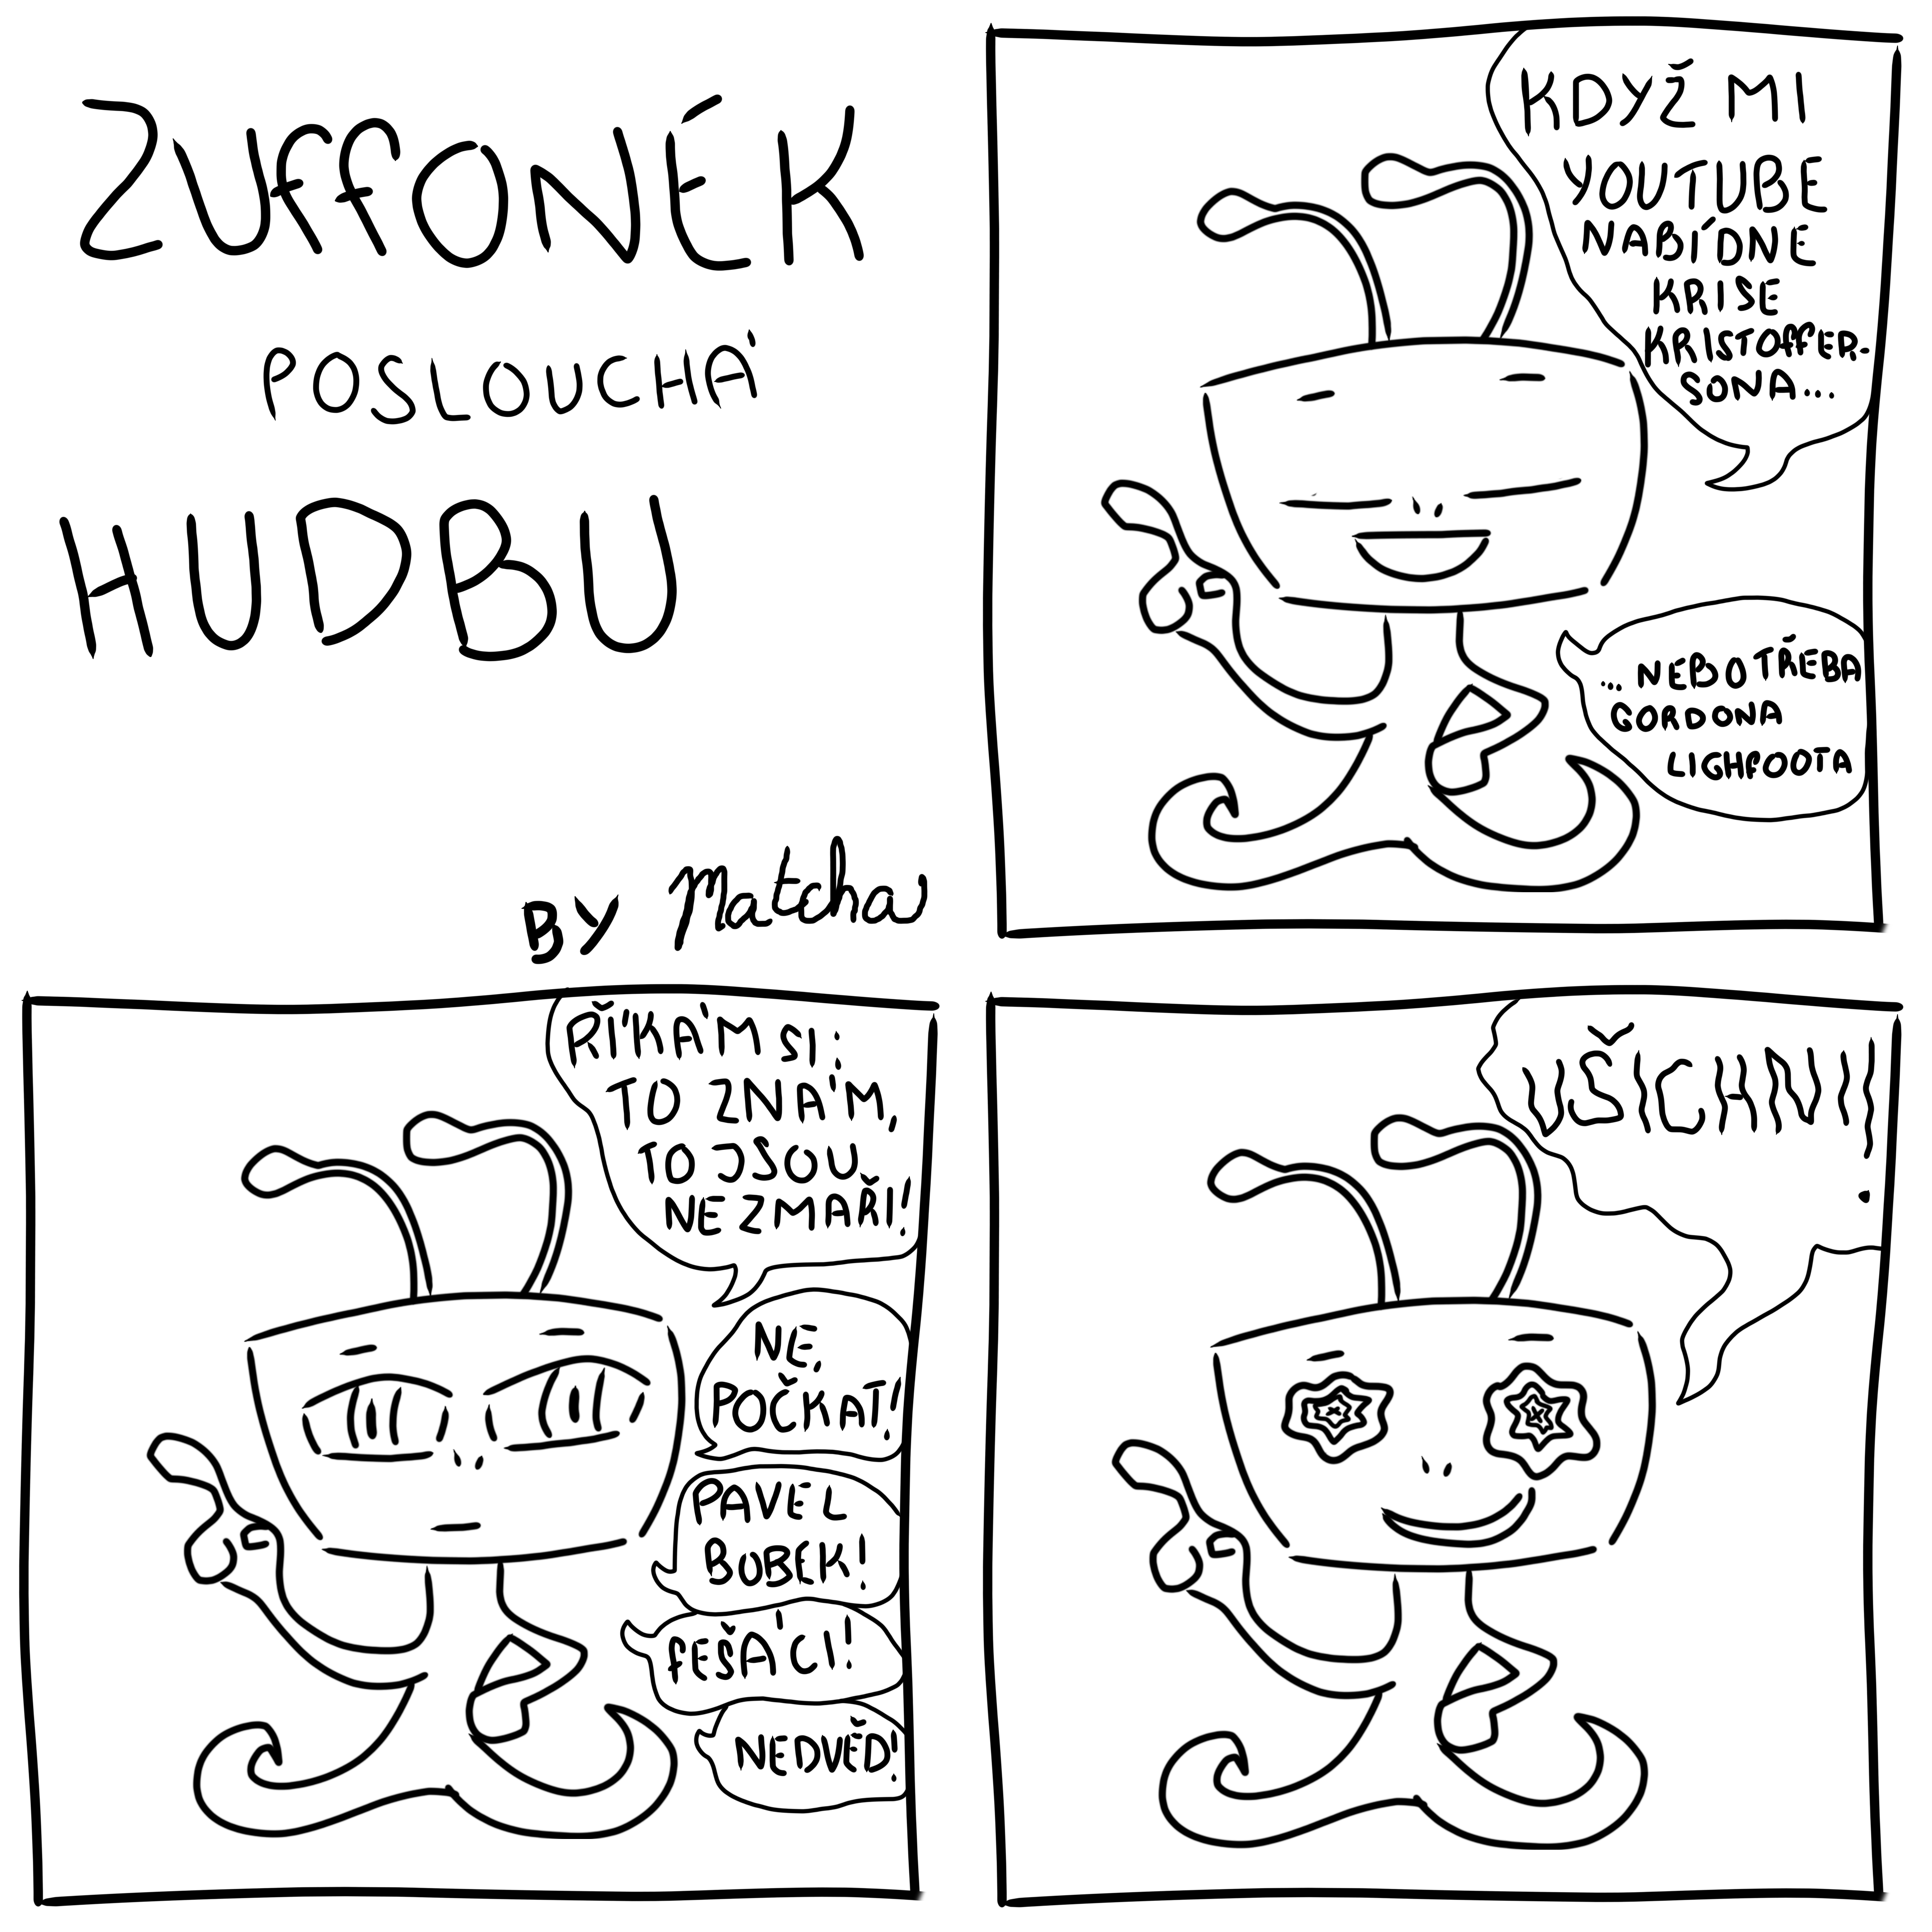 ZUFFONÉK
POSLOUCHÁ
HUDBU
BY Matcha
KDYŽ MI
YOUTUBE
NABÍDNE
KRISE
KRISTOFFER-
SONA...
...NEBO TŘEBA
GORDONA
LIGHFOOTA
ŘÍKÁM SI:
TO ZNÁM,
TO JSOU
NEZMAŘI!
NE,
POČKAT!
PAVEL
BOBEK!
FEŠÁCI!
NEDVĚD!
VŠICHNI!